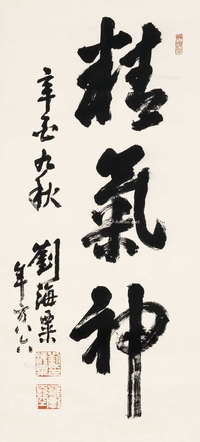 精氣神
辛酉九秋
劉海粟
年方八六